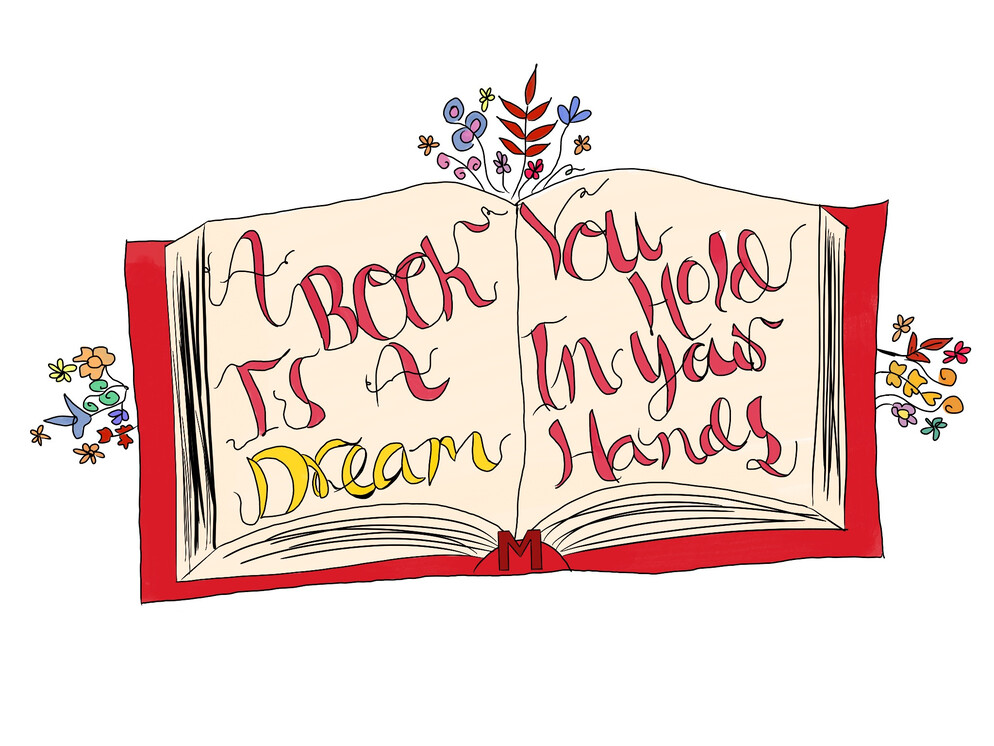 A
Book
Is A
Dream
You
Hold
In Your
Hands
M